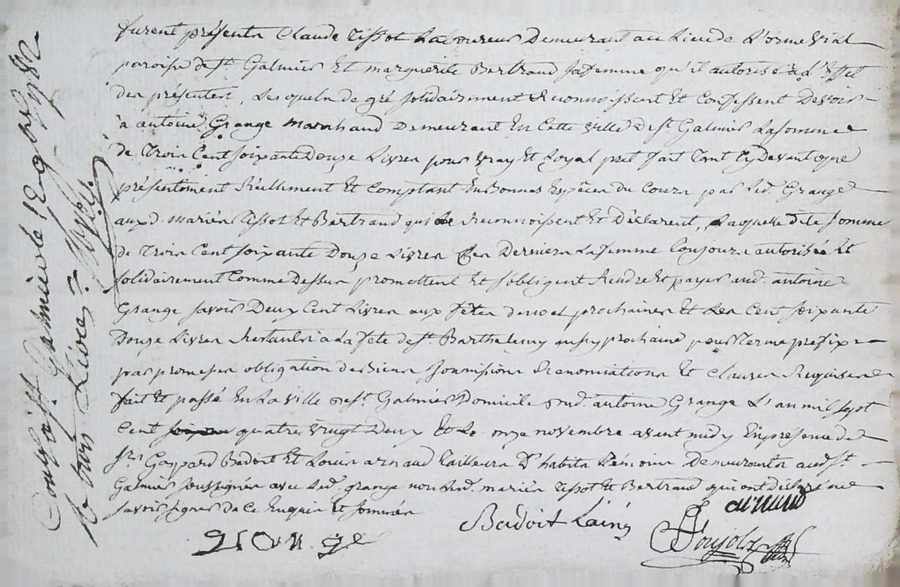 furent présents Claude Tissot Laboureur Demeurant au Lieu de L'orme Vial
paroisse de St. Galmier Et marguerite Bertrand sa femme qu'il autorise a L'Effet
des présentes, Lesquels de gré solidairement Reconnoissent Et Confessent Devoir
a antoine Grange Marchand Demeurant En Cette Ville de St. Galmier La somme
de Trois Cent soixante Douze Livres pour vray Et Loyal pret fait Tant Cy Devant que
présentement Réellement Et Comptant En Bonnes Espèces du Cours par Led. Grange
auxd. Mariés Tissot Et Bertrand qui Le Reconnoissent Et Déclarent, Laquelle dite somme
de Trois Cent soixante Douze Livres Ces Derniers La femme Toujours autorisée Et
solidairement Comme Dessus promettent Et s'obligent Rendre et payer aud. antoine
Grange savoir Deux Cent Livres aux fêtes de noel prochaines Et Les Cent soixante
Douze Livres Restantes a La fête de St. Barthelemy aussy prochaine pour Terme préfix
par promesses obligation de Biens soumissions Renonciations Et Clauses Requises
fait Et passé En La ville de St. Galmier Domicile dud. antoine Grange L'an mil sept
Cent quatre vingt Deux Et Le onze novembre avant midy En présence de
srs. Gaspard Badoit Et Louis arnaud Tailleurs D'habits Témoins Demeurants aud. St.
Galmier soussignés avec Led. grange non Lesd. mariés Tissot Et Bertrand qui ont déclaré ne
savoir signer de Ce Enquis Et sommés
arnaud
Badoit Lainé
grange
Ponjold
Conllé a St Galmier le 12 9bre 1782
Livres